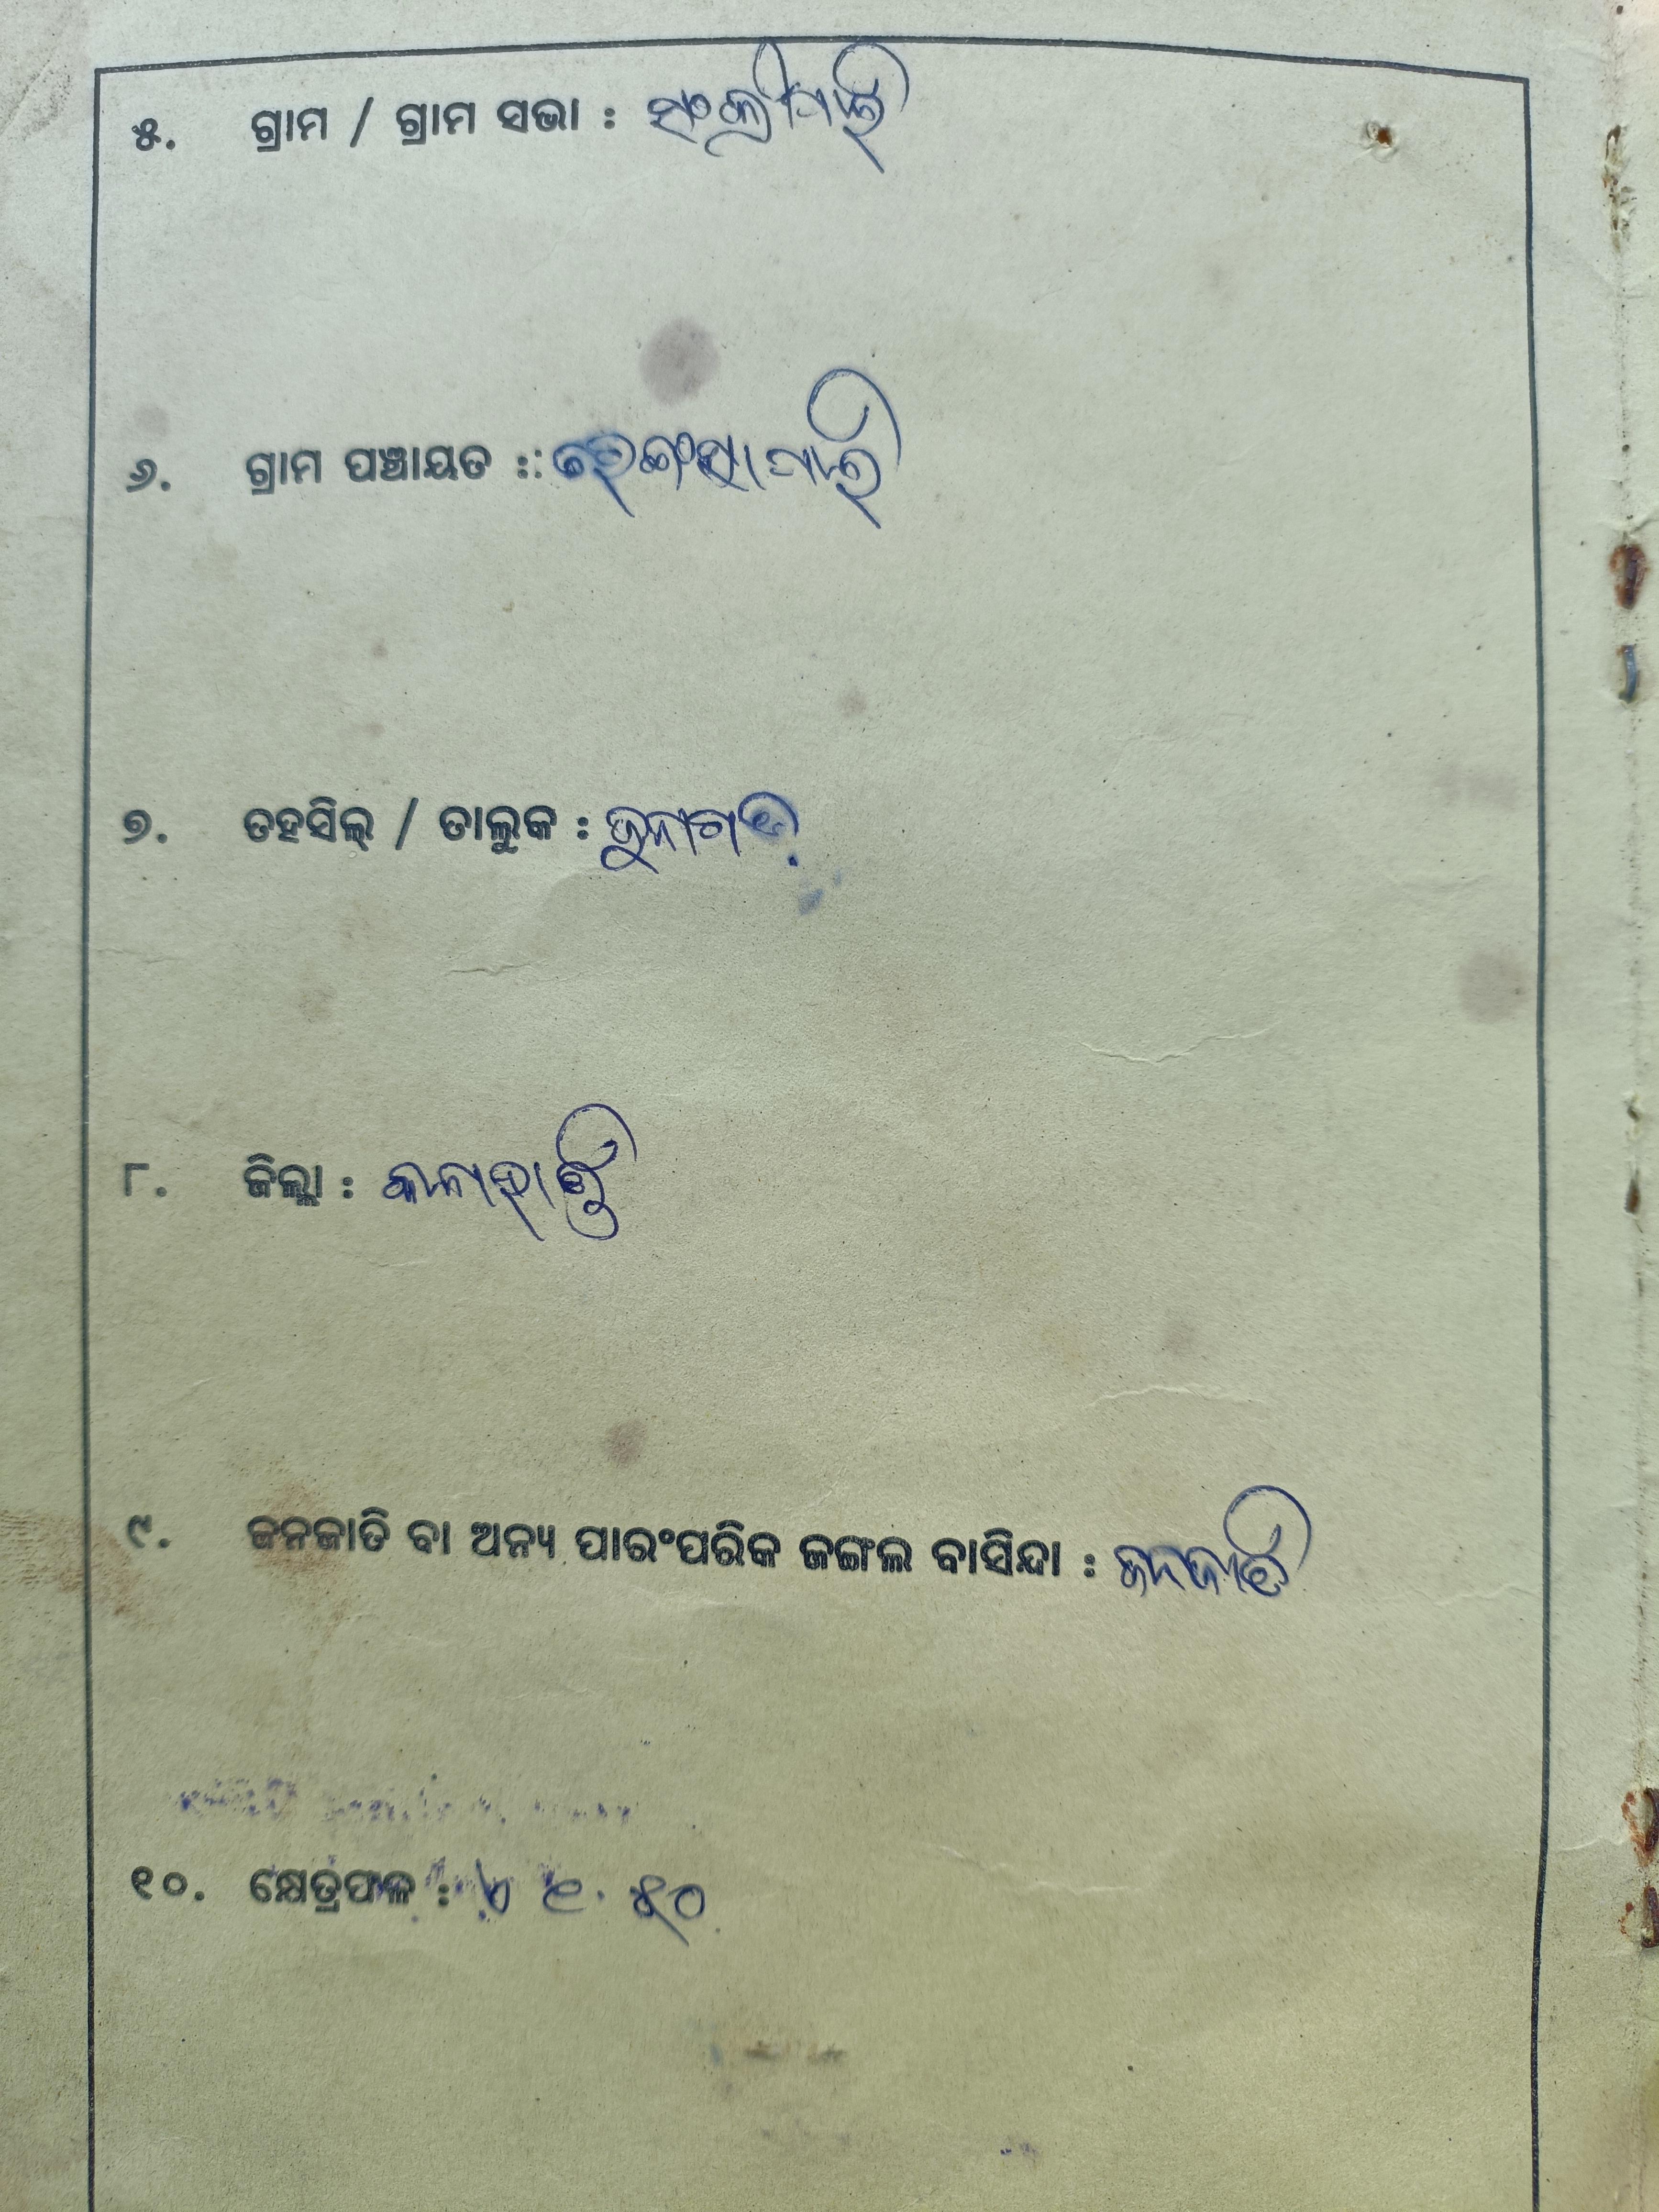 ୫. ଗ୍ରାମ / ଗ୍ରାମ ସଭା :
୬. ଗ୍ରାମ ପଞ୍ଚାୟତ ::
୭. ତହସିଲ୍ / ତାଲୁକ : ଜୁନାଗଡ଼
୮. ଜିଲ୍ଲା : କଳାହାଣ୍ଡି
୯. ଜନଜାତି ବା ଅନ୍ୟ ପାରଂପରିକ ଜଙ୍ଗଲ ବାସିନ୍ଦା : ଜନଜାତି
୧୦. କ୍ଷେତ୍ରଫଳ :